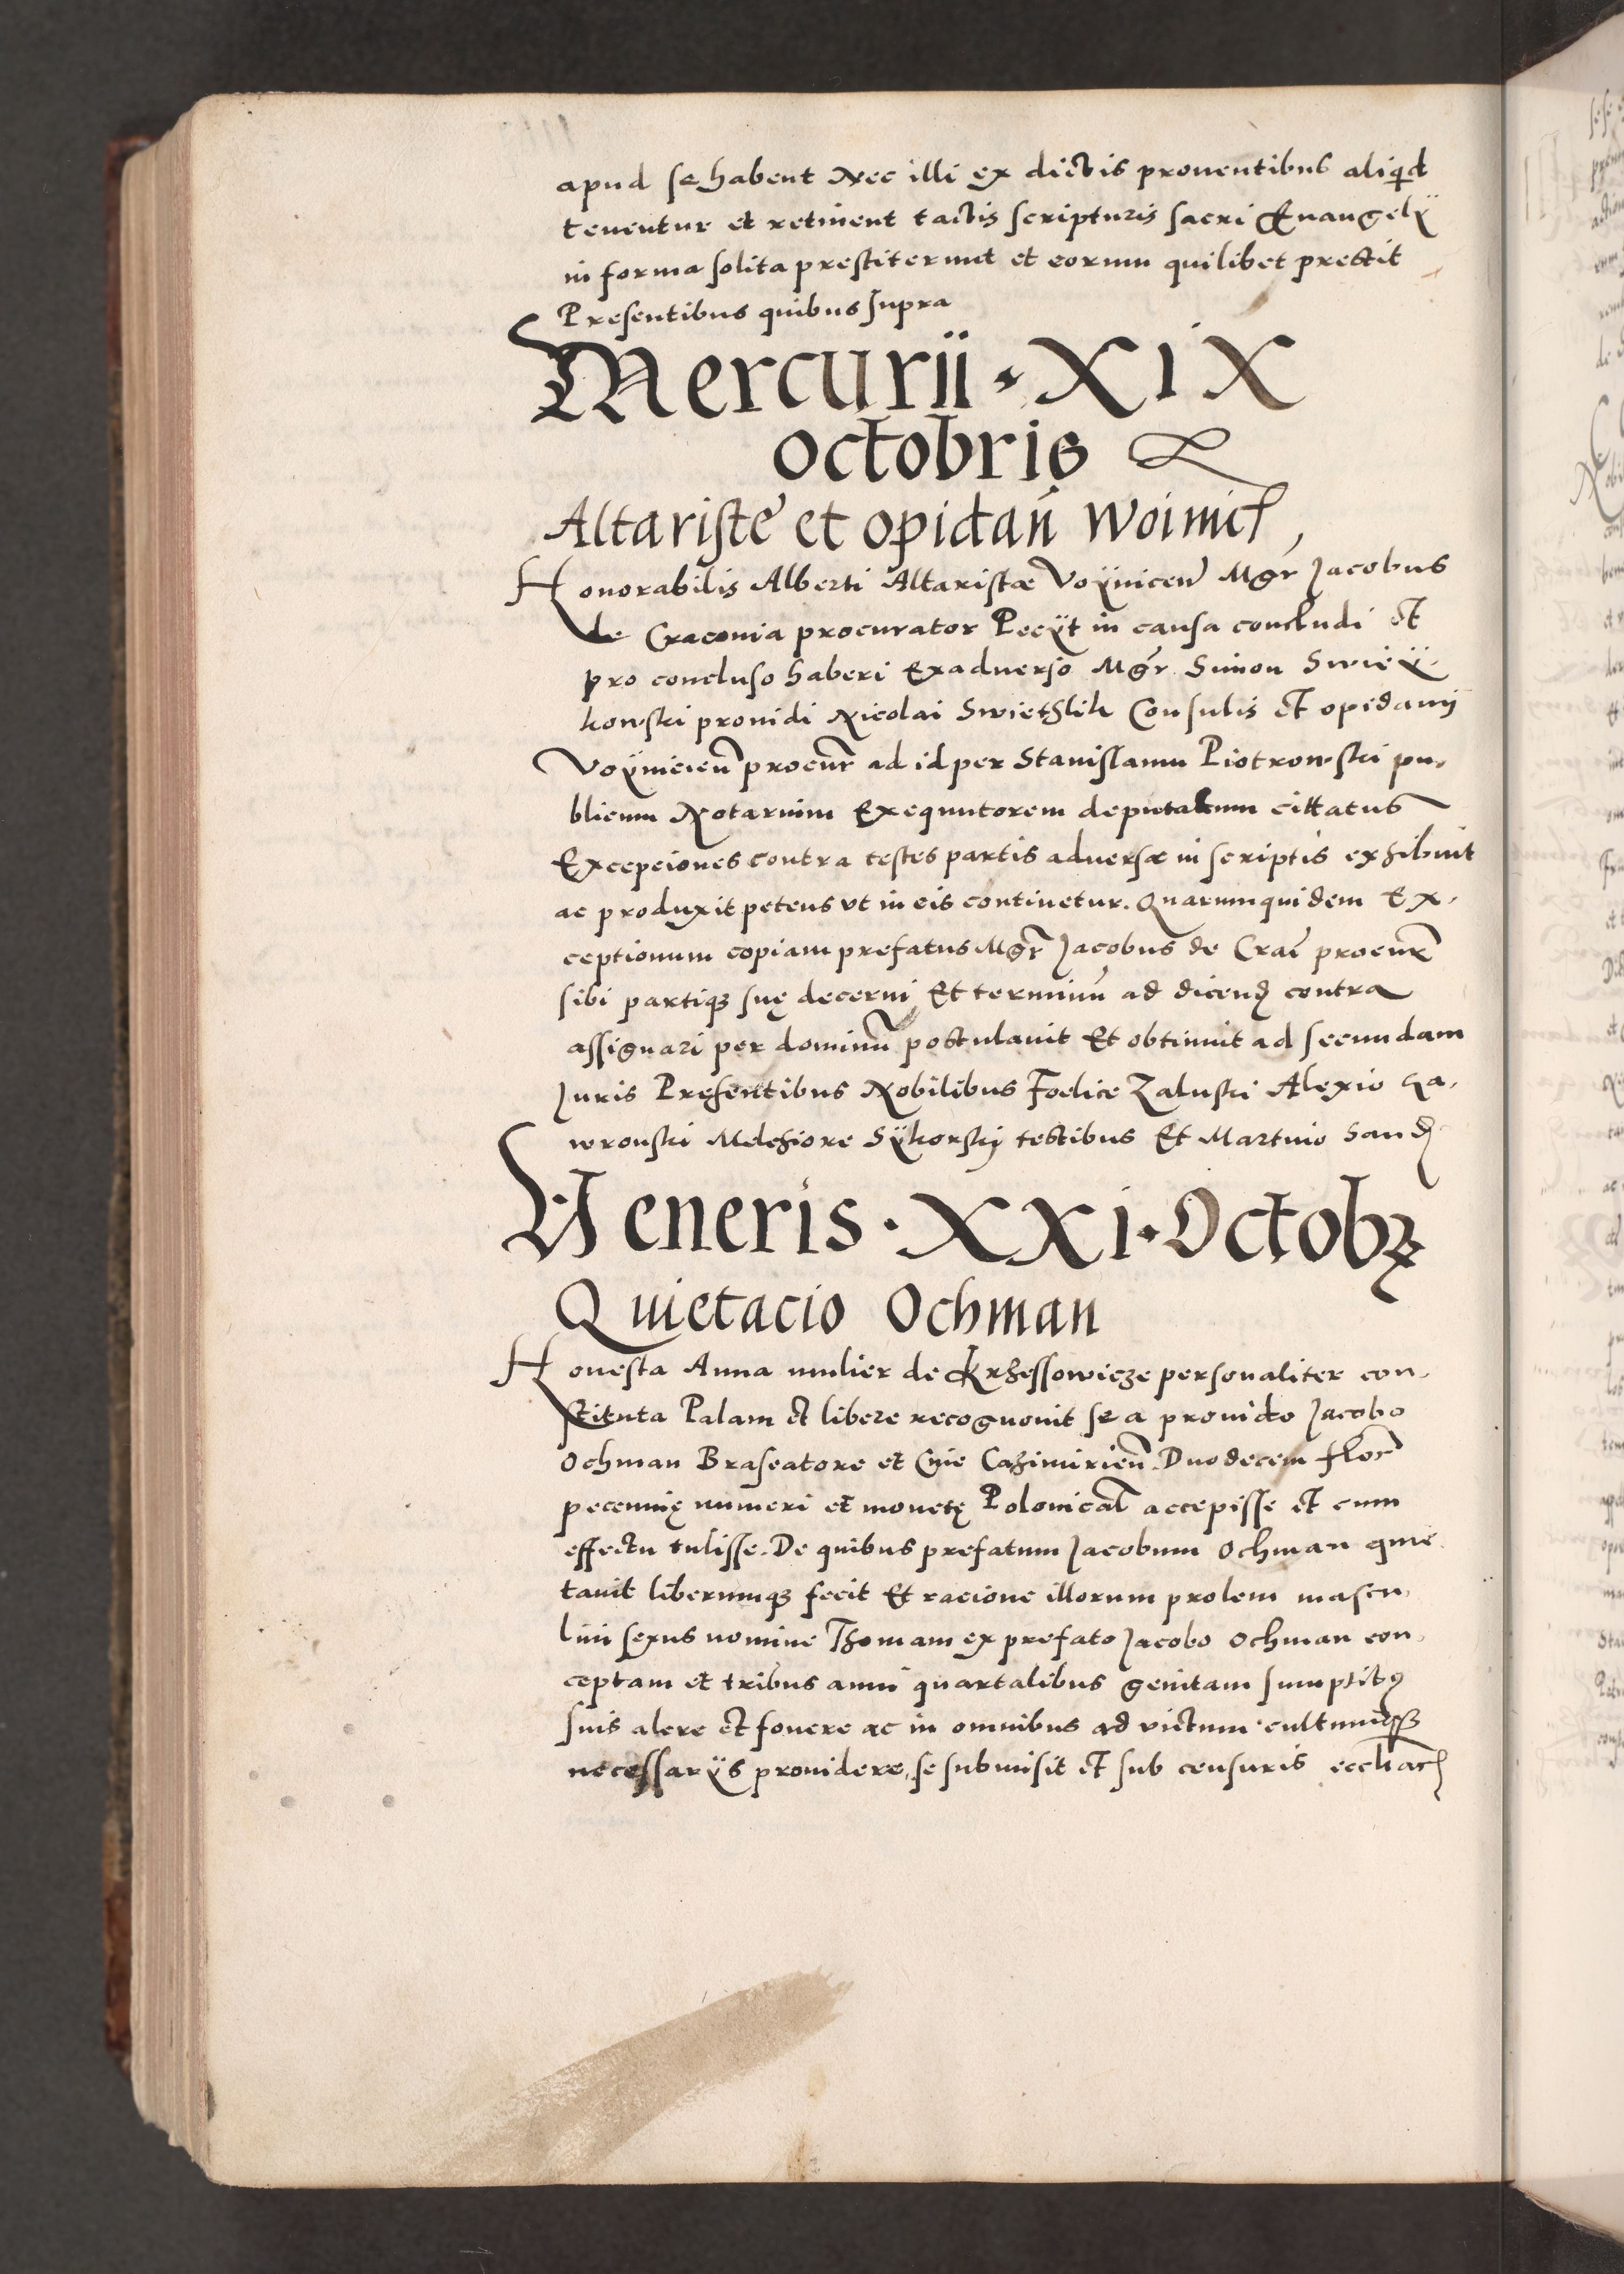 apud se habent Nec illi ex dictis prouentibus aliqid
tenentur et retinent tactis scripturis sacri Euangelÿ
in forma solita prestiterunt et eorum quilibet prestit
Presentibus quibus supra
Mercurii · XIX
octobris
Altariste et opidan̄ Woinicł
Honorabilis Alberti Altaristæ Voÿnicen̄ Mgr̄ Jacobus
de Craconia procurator Peciÿt in causa concludi et
pro concluso haberi Exaduerso Mgr̄ Simon Swieÿ-
kowski prouidi Nicolai Swiethlik Consulis et opidanij
Voÿnicien̄ procur̄ ad id per Stanislaum Piotrowski pu-
blicum Notarium Exequutorem deputatum cittatus
Excepciones contra testes partis aduersæ in scriptis exhibuit
ac produxit petens vt in eis continetur. Quarumquidem Ex-
ceptionum copiam prefatus Mgr̄ Jacobus de Crac̄ procur̄
sibi partiqꝫ suę decerni Et terminū ad dicend contra
assignari per dominū postulauit Et obtinuit ad secundam
Juris Presentibus Nobilibus Foelice Zaluski Alexio Ga-
wronski Melchiore Sÿkorskj testibus Et Martino Sand
Veneris · XXI · Octobꝝ
Quietacio Ochman
Honesta Anna mulier de Krzessowicze personaliter con-
stituta Palam et libere recognouit se a prouido Jacobo
Ochman Braseatore et Ciuie Cazimirien̄. Duodecem flor̄
pecunnię numeri et monetę Polonicał accepisse et cum
effectu tulisse. De quibus prefatum Jacobum Ochman quie-
tauit liberumqꝫ fecit Et racione illorum prolem mascu-
lini sexus nomine Thomam ex prefato Jacobo Ochman con-
ceptam et tribus anni quartalibus genitam sumptibꝰ
suis alere et fouere ac in omnibus ad victum cultumqꝫ
necessarÿs prouidere, se submisit et sub censuris eccl̄iac̄